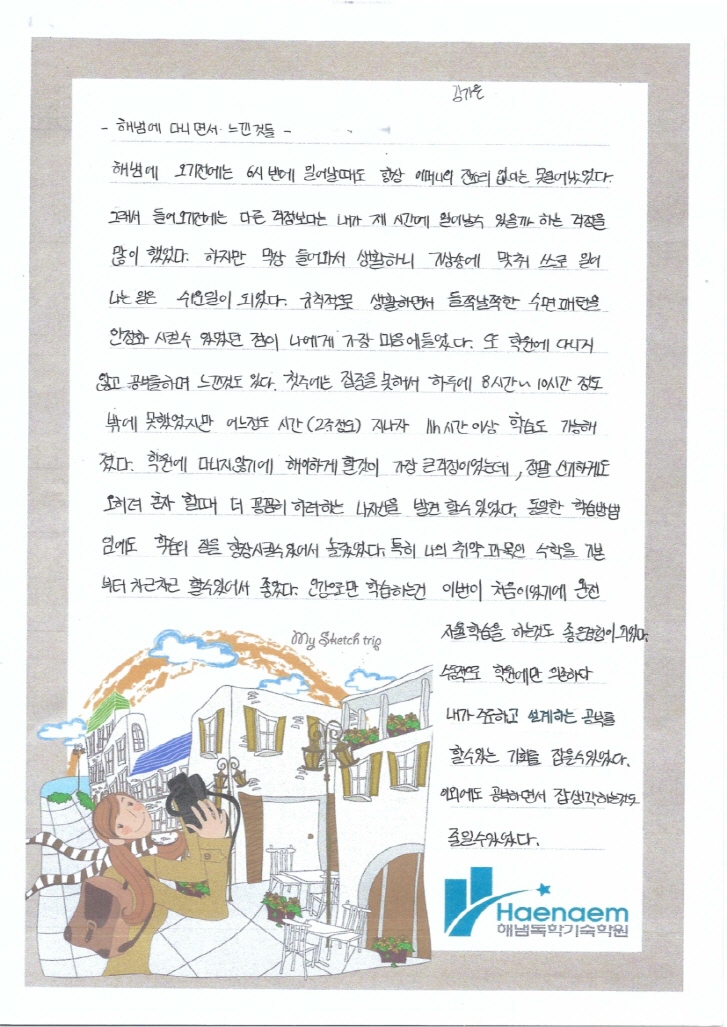 김가은
- 해냄에 다니면서 느낀것들 -
해냄에 오기전에는 6시 반에 일어날때도 항상 어머니의 잔소리 없이는 못일어났었다.
그래서 들어오기전에는 다른 걱정보다는 내가 제 시간에 일어날수 있을까 하는 걱정을
많이 했었다. 하지만 막상 들어와서 생활하니 기상송에 맞춰 스스로 일어
나는 일은 수월일이 되었다. 규칙적으로 생활하면서 들쭉날쭉한 수면패턴을
안정화 시킬수 있었던 점이 나에게 가장 마음에들었다. 또 학원에 다니지
않고 공부를하며 느낀것도 있다. 첫주에는 집중을 못해서 하루에 8시간~10시간 정도
밖에 못했었지만 어느정도 시간(2주정도) 지나자 시간이상 학습도 가능해
졌다. 학원에 다니지않기에 해이하게 할것이 가장 큰걱정이었는데, 정말 신기하게도
오히려 혼자 할때 더 꼼꼼히 하려하는 나자신을 발견 할수있었다. 동일한 학습방법
임에도 학습의 질을 향상시킬수있어서 놀라웠다. 특히 나의 취약 과목인 수학을 기본
부터 차근차근 할수있어서 좋았다. 인강으로만 학습하는건 이번이 처음이었기에 완전
My Sketch trip
자율학습을 하는것도 좋은경험이 되었다.
학원에만 의존하다
내가 주도하고 설계하는 공부를
할수있는 기회를 잡을수있었다.
이외에도 공부하면서 잡생각하는것도
줄일수있었다.
Haenaem
해냄독학기숙학원